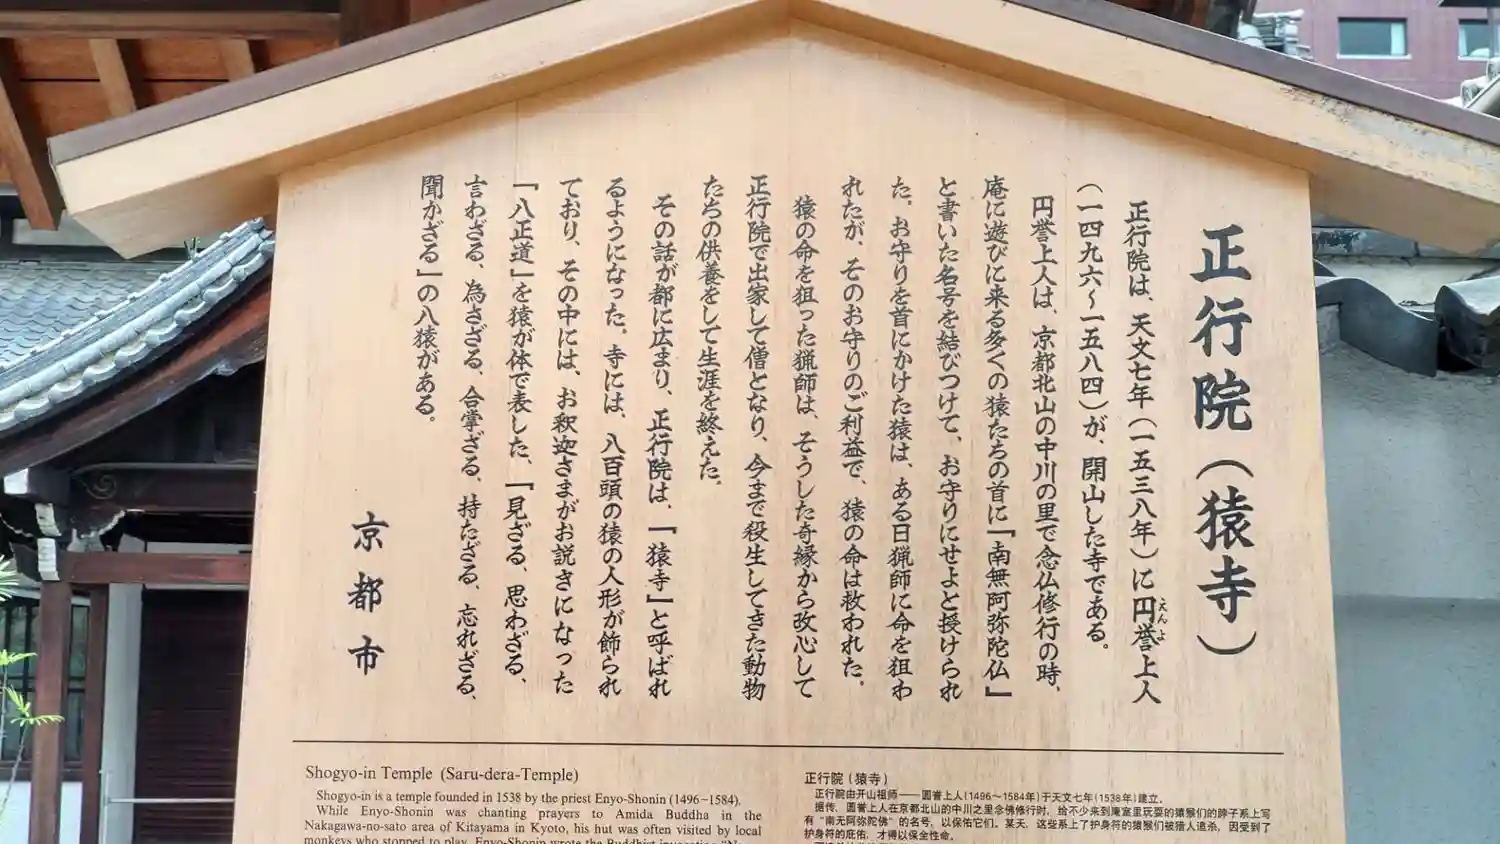 正行院（猿寺）
正行院は、天文七年（一五三八年）に円誉上人
えんよ
（一四九六～一五八四）が、開山した寺である。
円誉上人は、京都北山の中川の里で念仏修行の時、
庵に遊びに来る多くの猿たちの首に「南無阿弥陀仏」
と書いた名号を結びつけて、お守りにせよと授けられ
た。お守りを首にかけた猿は、ある日猟師に命を狙わ
れたが、そのお守りのご利益で、猿の命は救われた。
猿の命を狙った猟師は、そうした奇縁から改心して
正行院で出家して僧となり、今まで殺生してきた動物
たちの供養をして生涯を終えた。
その話が都に広まり、正行院は、「猿寺」と呼ばれ
るようになった。寺には、八百頭の猿の人形が飾られ
ており、その中には、お釈迦さまがお説きになった
「八正道」を猿が体で表した、「見ざる、思わざる、
言わざる、為さざる、合掌ざる、持たざる、忘れざる、
聞かざる」の八猿がある。
京都市
Shogyo-in Temple (Saru-dera-Temple)
Shogyo-in is a temple founded in 1538 by the priest Enyo-Shonin (1496–1584).
While Enyo-Shonin was chanting prayers to Amida Buddha in the
Nakagawa-no-sato area of Kitayama in Kyoto, his hut was often visited by local
monkeys who stopped to play. Enyo-Shonin wrote the Buddhist invocation
正行院（猿寺）
正行院由开山祖师——圆誉上人(1496～1584年)于天文七年(1538年)建立。
据传，圆誉上人在京都北山的中川之里念佛修行时，给不少来到庵室里玩耍的猿猴们的脖子系上写
有"南无阿弥陀佛"的名号，以保佑它们。某天，这些系上了护身符的猿猴们被猎人追杀，因受到了
护身符的庇佑，才得以保全性命。